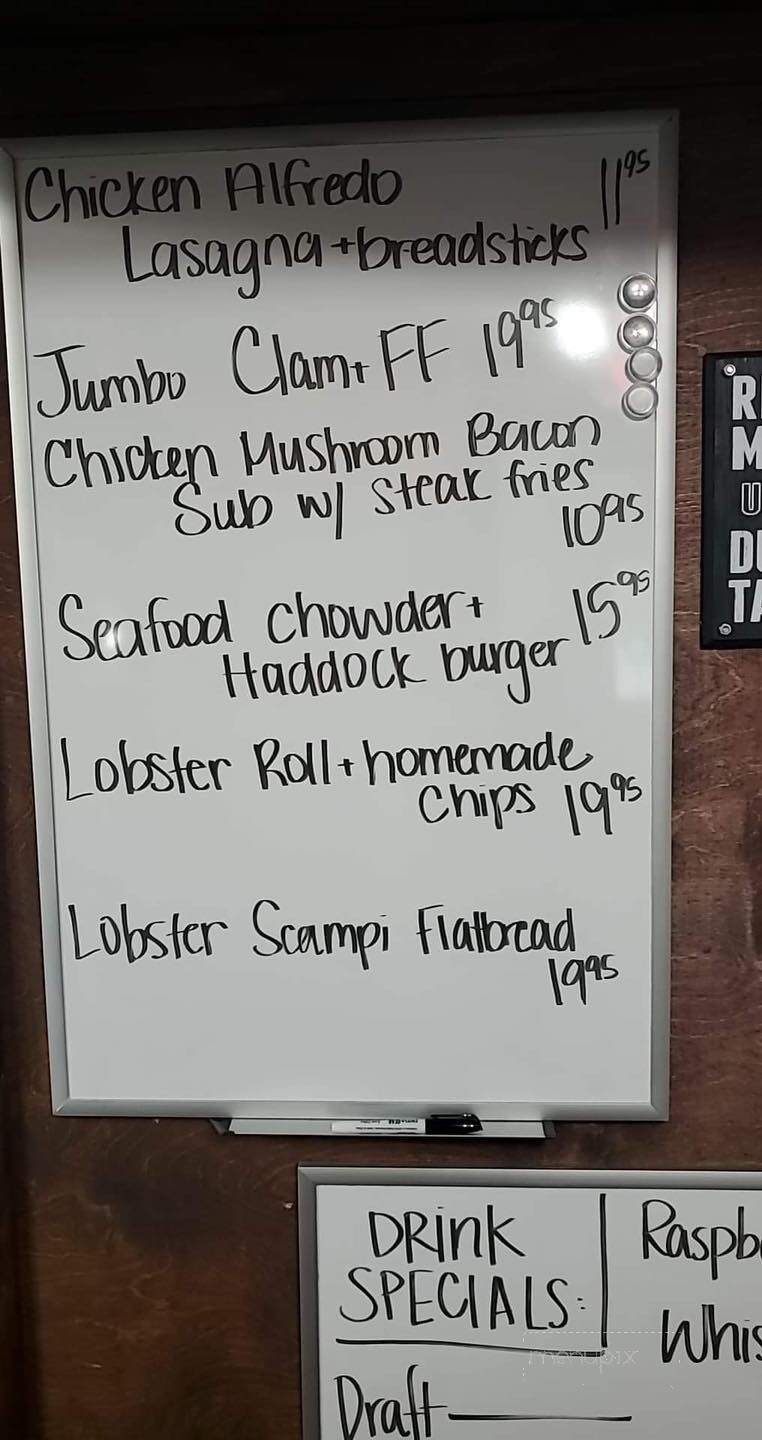 Chicken Alfredo 11⁹⁵
Lasagna + breadsticks
Jumbo Clam + FF 19⁹⁵
Chicken Mushroom Bacon
Sub w/ steak fries
10⁹⁵
Seafood chowder + 15⁹⁵
Haddock burger
Lobster Roll + homemade
Chips 19⁹⁵
Lobster Scampi Flatbread
19⁹⁵
DRINK
SPECIALS:
Draft
menupix